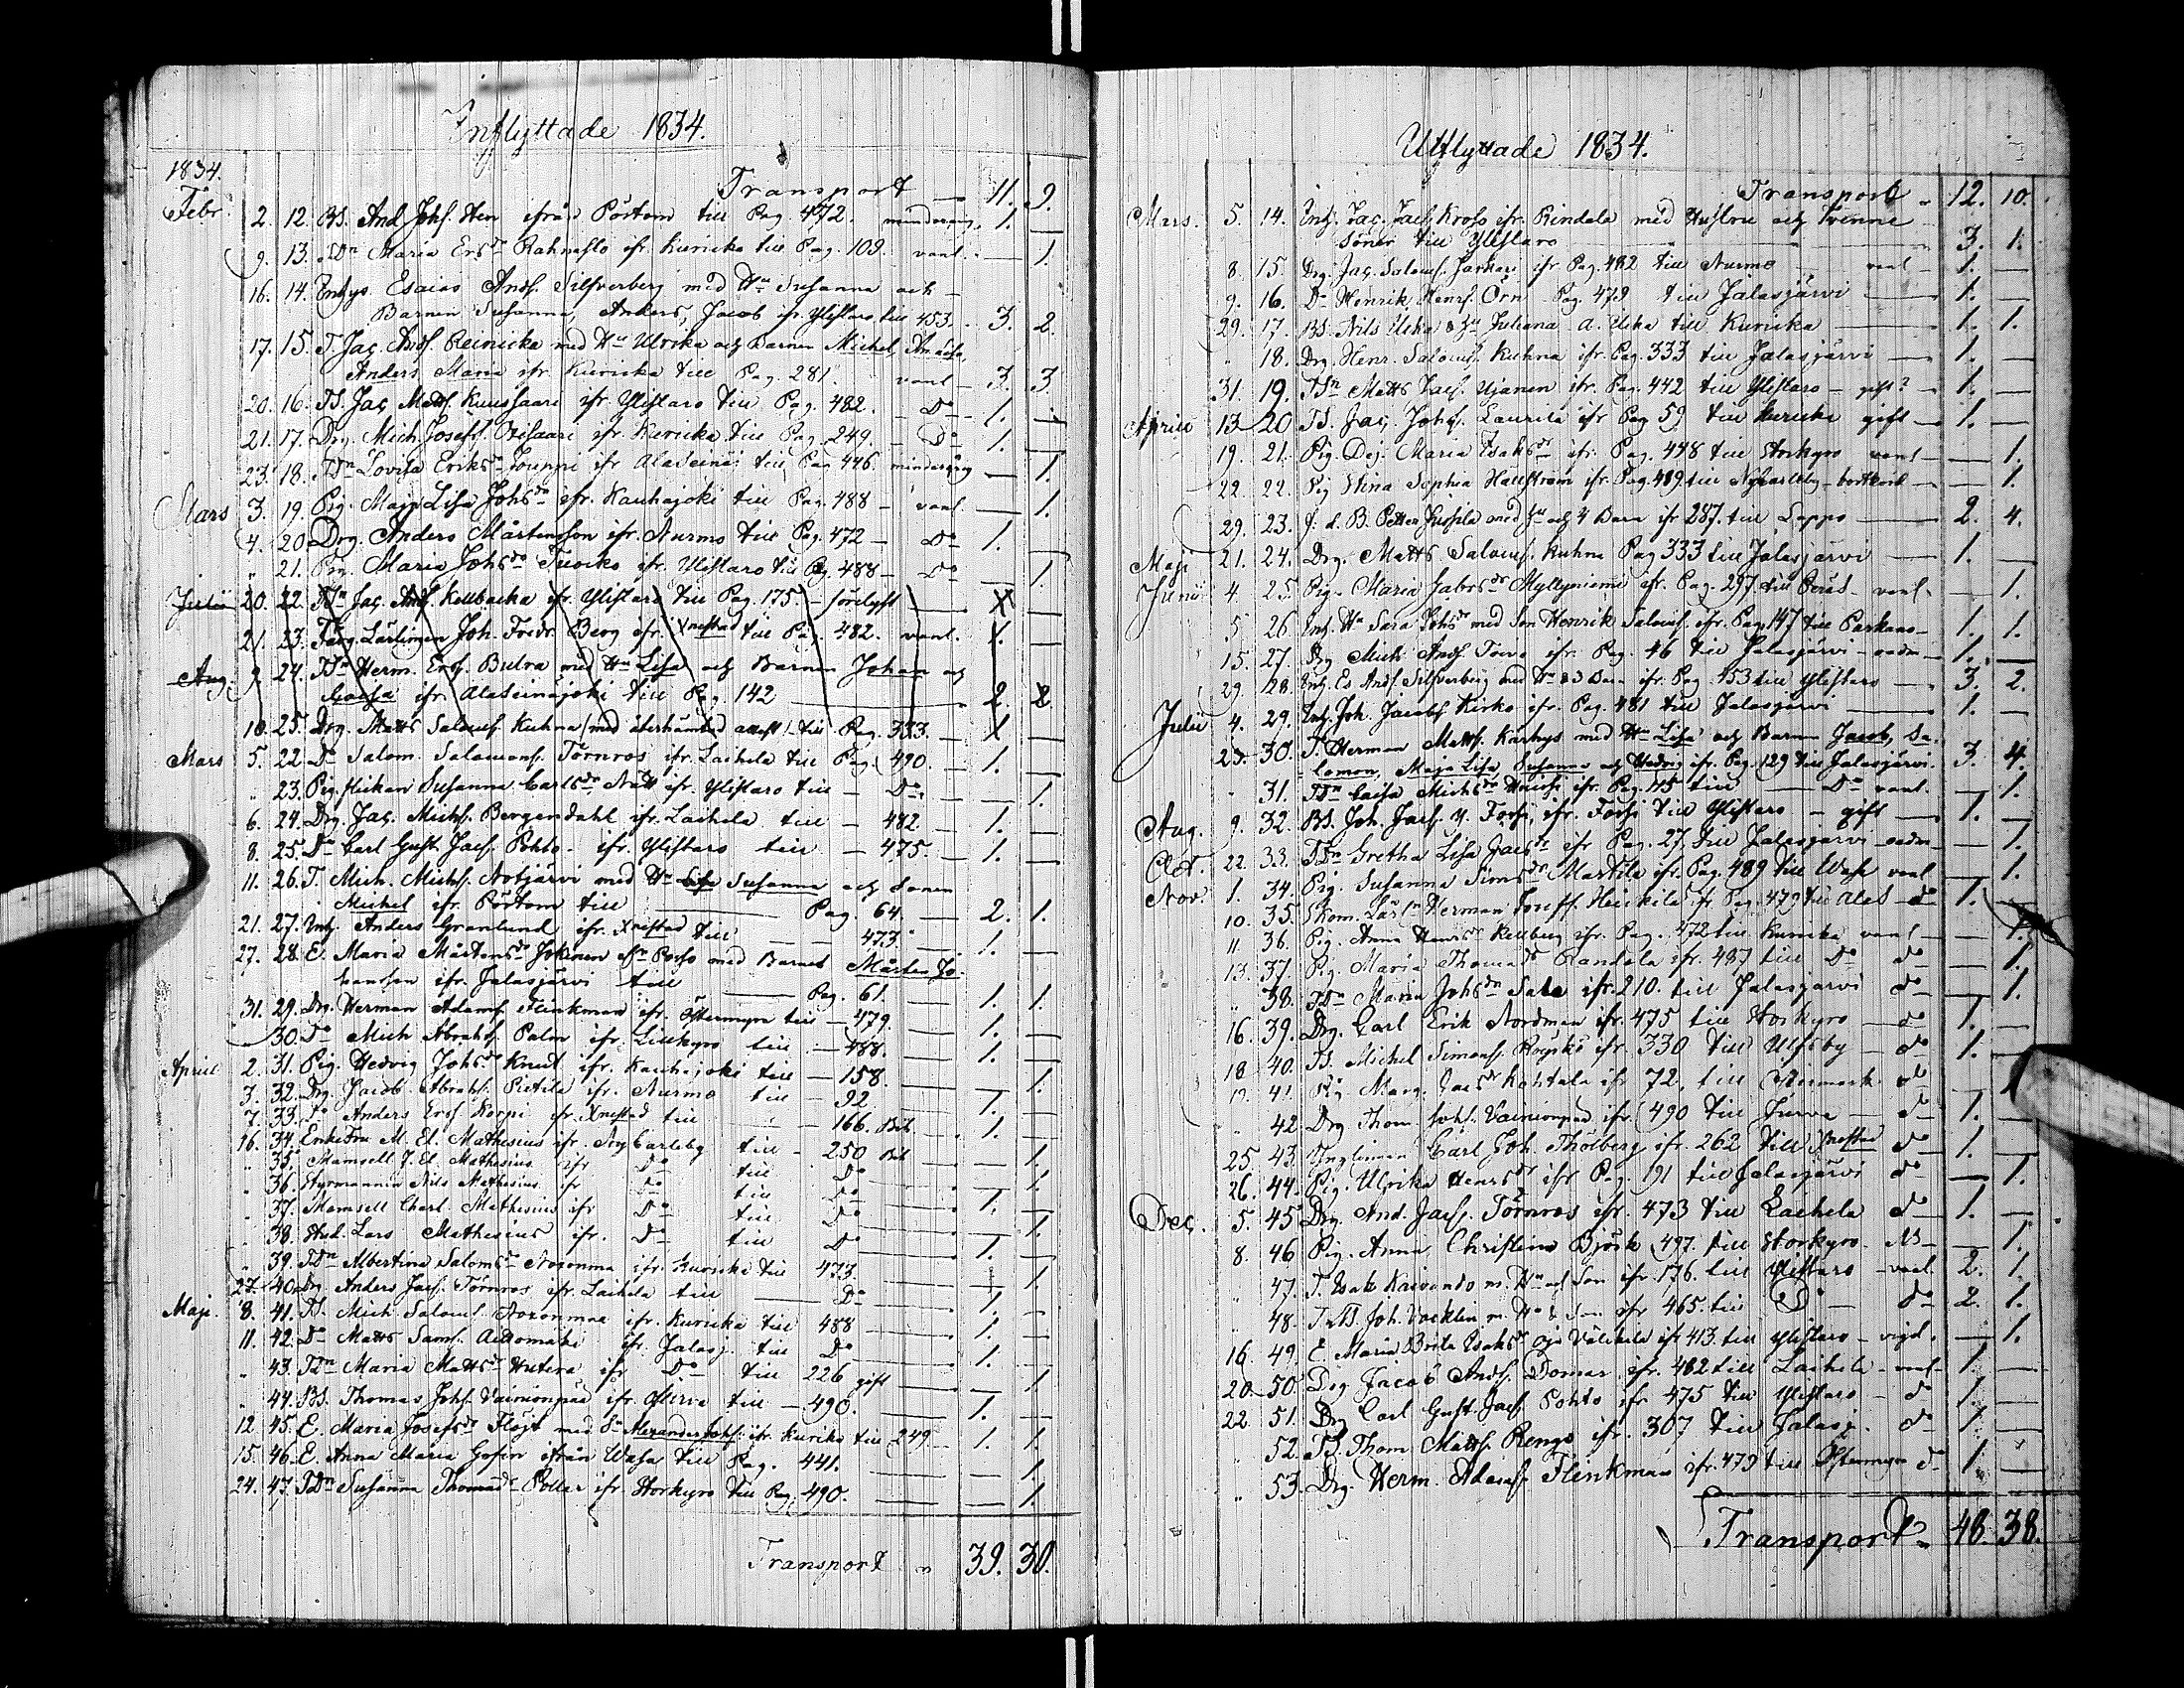 Inflyttade 1834.
1834.
Transport — 11. 9.
Febr. 2. 12. BS. And. Johs. Hen ifrån Pörtom till Pag. 472. minderårig 1. —
9. 13. TDn Maria Ersdr ifr. Kuricka till Pag. 109. vanl. — 1.
16. 14. Esaias Ands. Silfverberg med Hu Susanna och
Barnen Susanna, Anders, Jacob ifr. Ylistaro till 453. 3. 2.
17. 15. T. Jac. Ands. Reinicka med Hu Ulrika och Barnen Michel,
Anders, Maria ifr. Kuricka till Pag. 281. vanl. 3. 3.
20. 16. TS. Jac. Matts. Kuussaari ifr. Ylistaro till Pag. 482. — Do — 1. —
21. 17. Drg. Mich. Josefs. ifr. Kuricka till Pag. 249. — Do 1. —
23. 18. TDn Lovisa Eriksdr Jouppi ifr Alaseinäj. till Pag 446. minderårig — 1.
Mars 3. 19. Pig. Maja Lisa Johsdr ifr. Kauhajoki till Pag. 488 — vanl. — 1.
4. 20 Drg. Anders Mårtensson ifr. Nurmo till Pag. 472 — Do 1. —
" 21. Pig. Maria Johsdr ifr. Ylistaro till Pag. 488 — Do — 1.
Julii 20. 22. TDn Jac. Ands. Kellbacka ifr Ylistaro till Pag. 175. — 1 —
21. 23. Färg. Lärlingen Joh. Fredr. Berg ifr. Xnestad till Pag. 482. vanl. 1. —
Aug. 9. 24. TDn Herm. Ers. Butra med Hu Lisa och Barnen Johan och
Caisa ifr. Alaseinäjoki till Pag. 142 — 2. 2.
10. 25. Drg. Matts Saloms. Kuhna (med återhämtad attest) till Pag. 333. — 1 —
Mars 5. 22. Do Salom. Salomons. Törnros ifr. Laihela till Pag. 490. — 1. —
" 23. Pig. flickan Susanna Carlsdr Nätt ifr. Ylistaro till — Do — — 1.
6. 24. Drg. Jac. Michs. Bergendahl ifr. Laihela till — 482 — 1. —
8. 25. Do Carl Gust. Jacs. Pohto. ifr. Ylistaro till — 475. — 1. —
11. 26. T. Mich. Michs. Notjärvi med Hu Susanna och sonen
Michel ifr. Pörtom till — Pag. 64. — 2. 1.
21. 27. Anders Granlund ifr. Xnestad till — 473. — 1. —
27. 28. E. Maria Mårtensdr Jokinen med Barnet Mårten Jo-
hansson ifr. Jalasjärvi till — Pag. 61. — 1. 1.
31. 29. Drg. Herman Adams. Flinkman ifr. Östermyra till — 479. — 1. —
30. Do Mich. Abrahs. Palm ifr. Lillkyro till — 488. — 1. —
April 2. 31. Pig. Hedvig Johsdr Knut ifr. Kauhajoki till — 158. — — 1.
3. 32. Drg. Jacob Abrahs. Pietilä ifr. Nurmo till — 92 — 1. —
7. 33. Do Anders Ers. Korpi ifr. Xnestad till — 166. — 1. —
16. 34. Enkefru M. El. Mathesius ifr. Nycarleby till — 250 — — 1.
" 35. Mamsell J. El. Mathesius ifr Do till Do — — 1.
" 36. Styrmannen Nils Mathesius ifr Do till Do — 1. —
" 37. Mamsell Charl. Mathesius ifr Do till Do — — 1.
" 38. Stud. Lars Mathesius ifr. Do till Do — 1. —
" 39. TDn Albertina Salomsdr ifr. Kuricka till 473. — — 1.
27. 40. Drg. Anders Jacs. Törnros ifr. Laihela till — Do — 1. —
Maji 8. 41. TS. Mich. Saloms. ifr. Kuricka till 488 — 1. —
11. 42. Do Matts Sams. ifr. Jalasj. till Do — 1. —
" 43. TDn Maria Mattsdr Hutera ifr Do till 226 gift — — 1
" 44. BS. Thomas Johs. Vainionpää ifr. Jurva till — 490. — 1. —
12. 45. E. Maria Josefsdr Flöjt med Sn Alexander Johs. ifr. Kurika till 249. — 1. 1.
15. 46. E. Anna Maria Hofin ifrån Wasa till Pag. 441. — — 1.
24. 47. TDn Susanna Thomasdr Potter ifr Storkyro till Pag. 490. — — 1.
Transport " 39. 30.
Utflyttade 1834.
Transport " 12. 10.
Mars. 5. 14. Jac. Jacs. Kross ifr. Rindala med Hustru och trenne
Söner till Ylistaro — 3. 1.
8. 15. Drg. Jac. Saloms. ifr Pag. 482 till Nurmo — vanl — 1. —
9. 16. Do Henrik Henrs. Örn Pag. 479 till Jalasjärvi — 1. —
29. 17. BS. Nils Uska & Hu Juliana A. Uska till Kuricka — 1. 1.
" 18. Drg. Henr. Saloms. Kuhna ifr. Pag. 333 till Jalasjärvi — 1. —
31. 19. TSn Matts Jacs. Ujanen ifr. Pag. 442 till Ylistaro — gift? — 1. —
April 13 20 TS. Jac. Johs. Laurila ifr Pag 59 till Kuricka gift — 1. —
19. 21. Pig. Dej. Maria Esaksdr ifr. Pag. 478 till Storkyro vanl — — 1.
22. 22. Pig Stina Sophia Hallström ifr. Pag. 489 till Nycarleby — — 1.
29. 23. f. d. B. Petter Jussila med Hu och 4 Barn ifr 287. till Lappo — 2. 4.
Maji 21. 24. Drg. Matts Saloms. Kuhna Pag 333 till Jalasjärvi — 1. —
Junii 4 25. Pig. Maria Gabrsdr Myllyniemi ifr. Pag. 297 till Peräs. vanl. — 1.
5. 26. Hu Sara Johsdr med Son Henrik Saloms. ifr. Pag 147 till Parkano — 1. 1.
15. 27. Drg Mich Ands. Toivo ifr Pag. 46 till Jalasjärvi — 1. —
29. 28. Es. Ands. Silfverberg med Hu & 3 Barn ifr. Pag. 453 till Ylistaro — 3. 2.
Julii 4. 29. Joh. Jacobs. Kirko ifr. Pag. 481 till Jalasjärvi — 1. —
23. 30. T. Herman Matts. Karhys med Hu Lisa och Barnen Jacob, Sa-
lomon, Maja Lisa, Susanna och Hedvig ifr. Pag. 129 till Jalasjärvi. 3. 4.
" 31. TDn Caisa Michsdr ifr. Pag. 115 till — Do vanl. — 1.
Aug. 9. 32. BS. Joh. Jacs. Y. Forsi, ifr. Forsi till Ylistaro — gift — 1. —
Oct. 22. 33. TDn Gretha Lisa Jacsdr ifr Pag. 27, till Jalasjärvi — 1.
Nov. 1. 34. Pig. Susanna Simsdr Marttila ifr. Pag. 489 till Wasa vanl — 1.
10. 35. Skom. Lärln Herman Josefs. Heikkilä ifr Pag. 479 till Alas — do 1. —
11 36. Pig. Anna Henrsdr Kellberg ifr. Pag. 472 till Kuricka vanl — — 1.
13. 37. Pig. Maria Thomasdr Randala ifr. 487 till Do do — 1.
" 38. TDn Maria Johsdr Sale ifr. 210. till Jalasjärvi do — 1.
16. 39. Drg. Carl Erik Nordman ifr. 475 till Storkyro — do 1. —
18 40. TS. Michel Simons. ifr. 330 till Ulfsby — do 1. —
" 41. Pig. Marg. Jacsdr Kohtala ifr 72. till do — 1
" 42. Drg Thom. Johs. Vainionpää ifr. 490 till Jurva — do 1. —
25. 43. Ynglingen Carl Joh. Tholberg ifr. 262 till Xnestad do 1. —
26. 44. Pig. Ulrika Henrsdr ifr Pag. 191 till Jalasjärvi do — 1.
Dec. 5. 45 Drg. And. Jacs. Törnros ifr. 473 till Laihela do 1. —
8. 46 Pig. Anna Christina Björk 497. till Storkyro. — 1.
" 47. T. Isak Kaivando m. Hu och Son ifr. 176. till Ylistaro — vanl. 2. 1.
" 48. Joh. m. Hu & Son ifr 465. till Do — do 2. 1.
16. 49. E. Maria Brita Isaksdr ifr 413. till Ylistaro — — 1.
20. 50. Drg Jacob Ands. Domar ifr. 482 till Laihela — vanl — 1. —
22. 51. Drg Carl Gust. Jacs. Pohto ifr 475 till Ylistaro — do 1. —
" 52. TS. Thom. Matts. Rengo ifr. 307 till Jalasj. do 1. —
" 53. Drg. Herm. Adams. Flinkman ifr. 479 till Östermyra do 1. —
Transport " 48. 38.